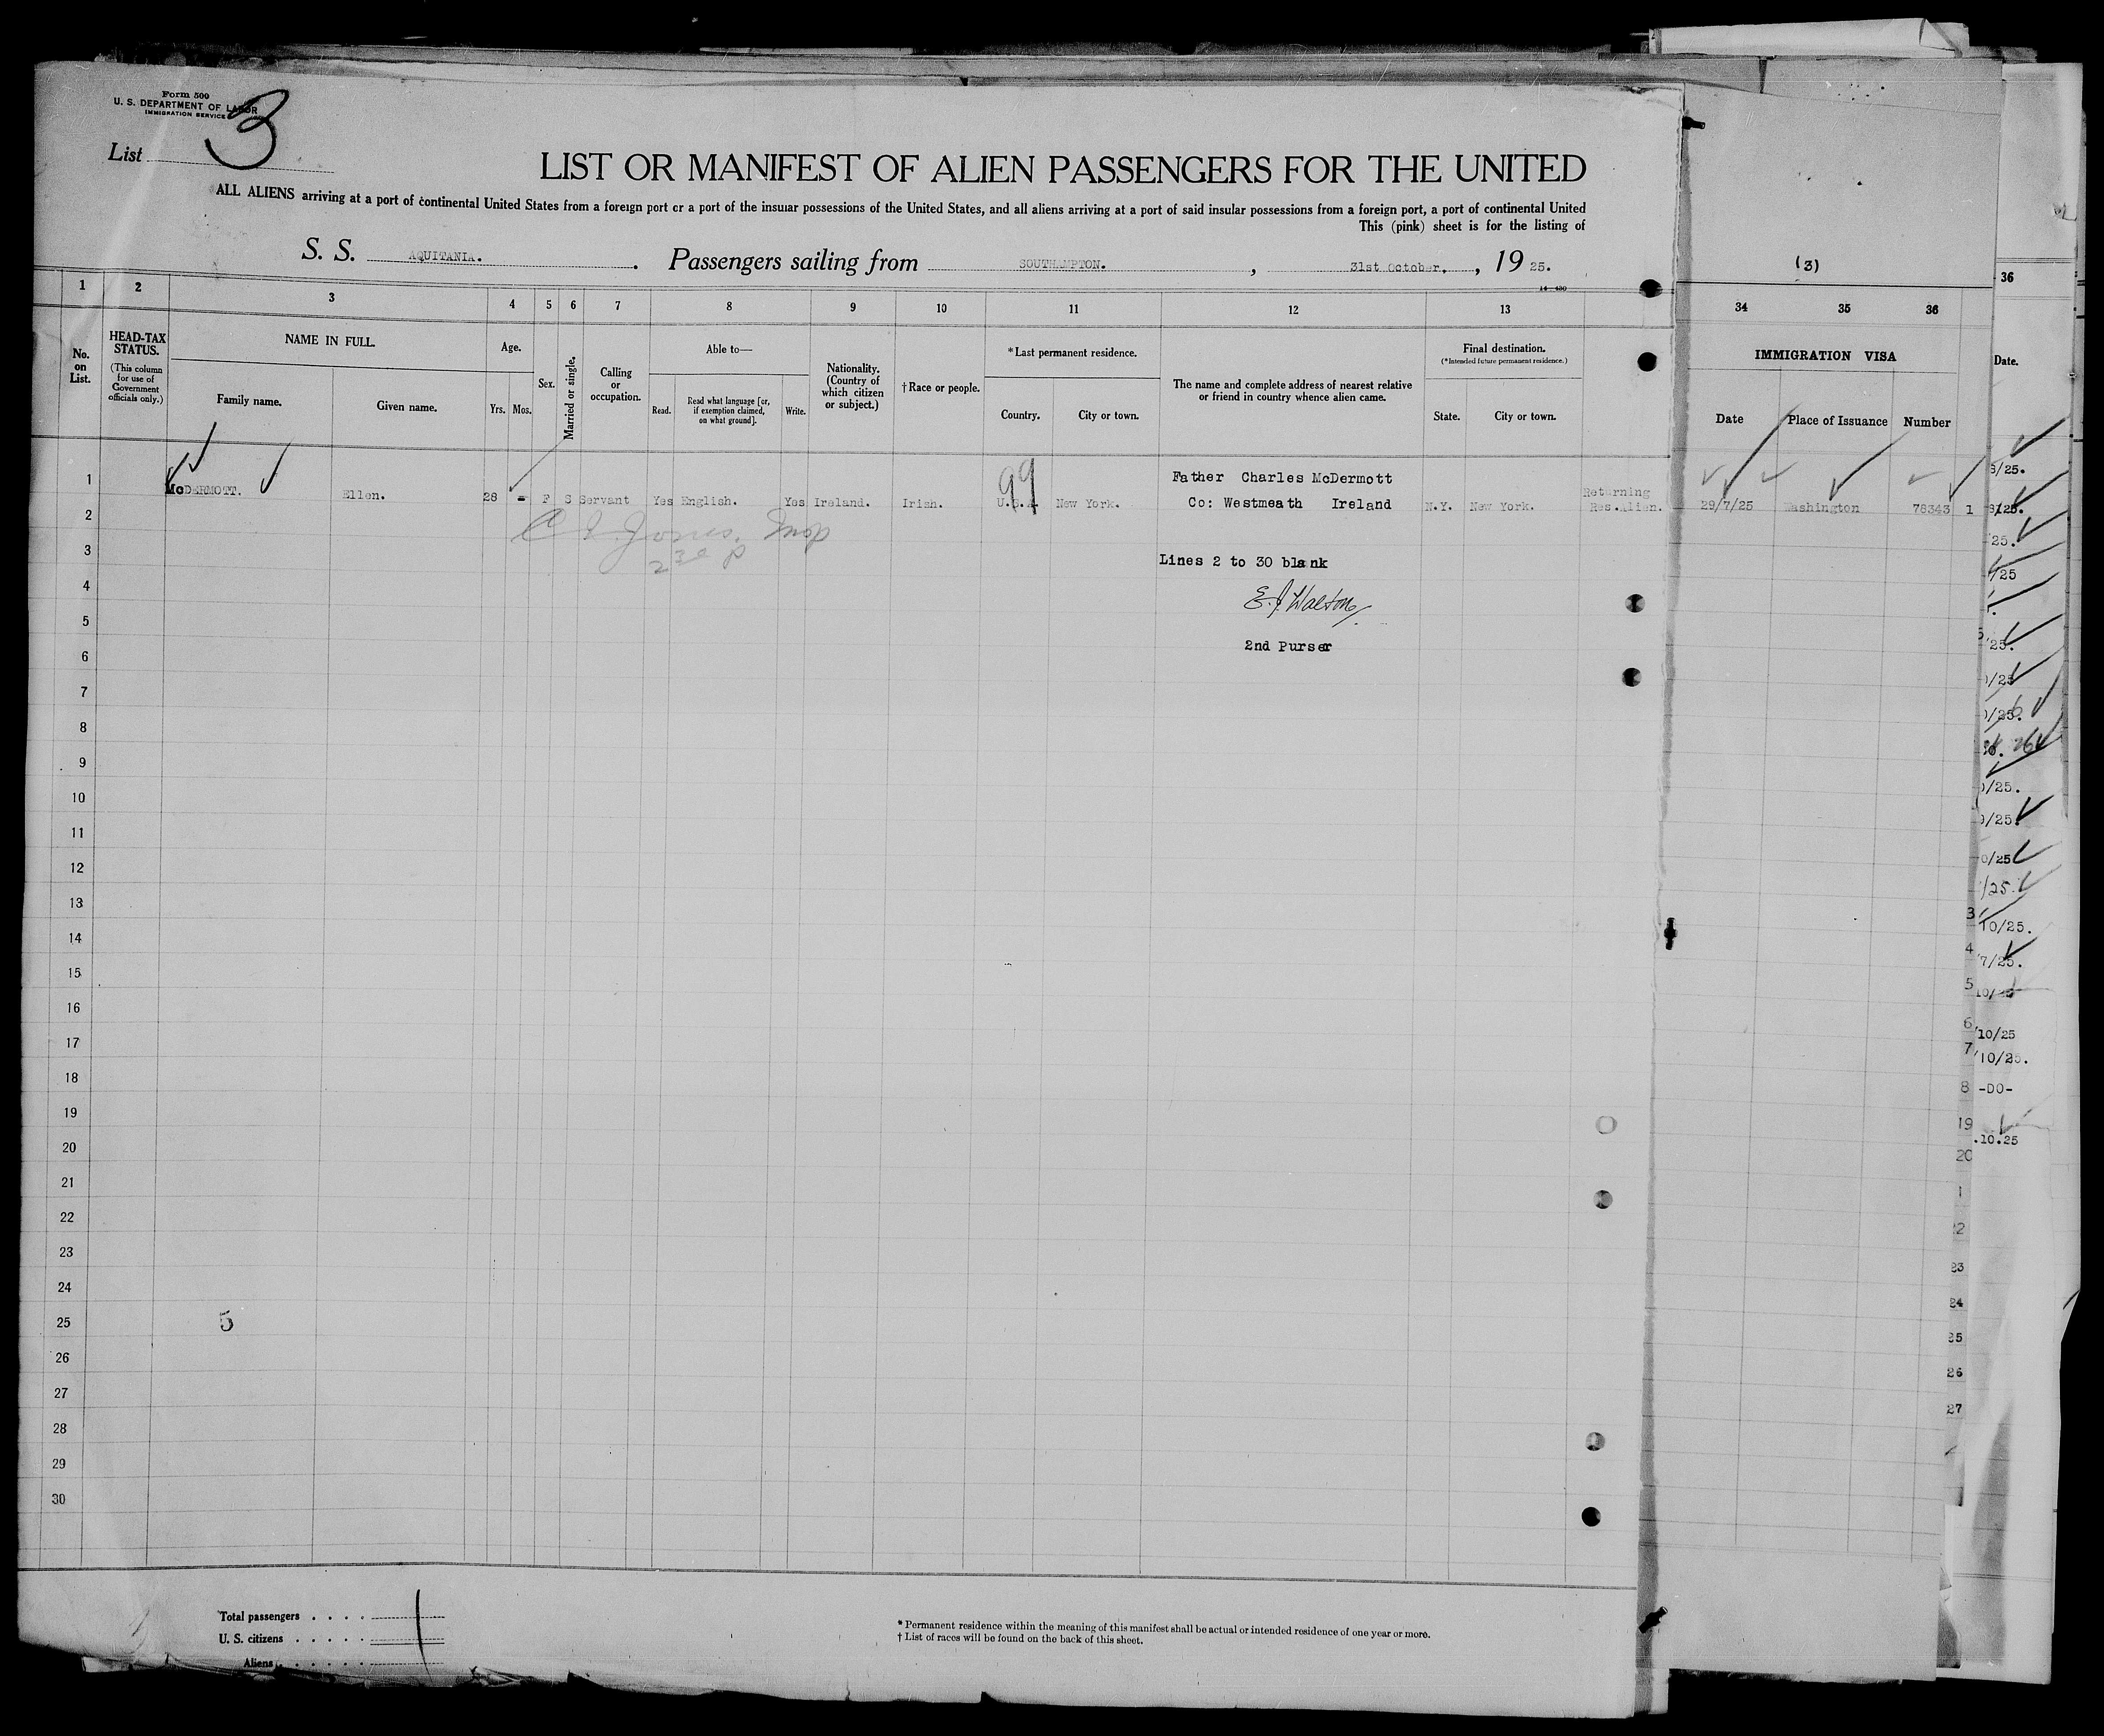 Form 500
U. S. DEPARTMENT OF LABOR
IMMIGRATION SERVICE
List 3
LIST OR MANIFEST OF ALIEN PASSENGERS FOR THE UNITED
ALL ALIENS arriving at a port of continental United States from a foreign port or a port of the insular possessions of the United States, and all aliens arriving at a port of said insular possessions from a foreign port, a port of continental United
This (pink) sheet is for the listing of
S. S. AQUITANIA. Passengers sailing from SOUTHAMPTON. , 31st October. , 19 25.
(3)
14—430
1 2 3 4 5 6 7 8 9 10 11 12 13 34 35 36 36
No. on List.
HEAD-TAX STATUS.
(This column for use of Government officials only.)
NAME IN FULL.
Family name. Given name.
Age.
Yrs. Mos.
Sex.
Married or single.
Calling or occupation.
Able to—
Read. Read what language [or, if exemption claimed, on what ground]. Write.
Nationality. (Country of which citizen or subject.)
†Race or people.
*Last permanent residence.
Country. City or town.
The name and complete address of nearest relative or friend in country whence alien came.
Final destination.
(*Intended future permanent residence.)
State. City or town.
IMMIGRATION VISA
Date Place of Issuance Number
Date.
99
Father Charles McDermott
1 McDERMOTT. Ellen. 28 - F S Servant Yes English. Yes Ireland. Irish. U.S.A New York. Co: Westmeath Ireland N.Y. New York. Returning Res.Alien. 29/7/25 Washington 76343 1
C I Jones, Insp
2
3
Lines 2 to 30 blank
4
E. J. Walton
5
6
2nd Purser
7
8
9
10
11
12
13
14
15
16
17
18
19
20
21
22
23
24
25 5
26
27
28
29
30
/25.
/25.
25.
/25
25.
/25
/25.
/25.
/25.
/25
/25.
3 10/25.
4 7/25.
5 10/25
6 /10/25
7 /10/25.
8 -DO-
19 .10.25
20
1
22
23
24
25
26
27
Total passengers . . . .
U. S. citizens . . . . . 1
Aliens . . . . . .
* Permanent residence within the meaning of this manifest shall be actual or intended residence of one year or more.
† List of races will be found on the back of this sheet.